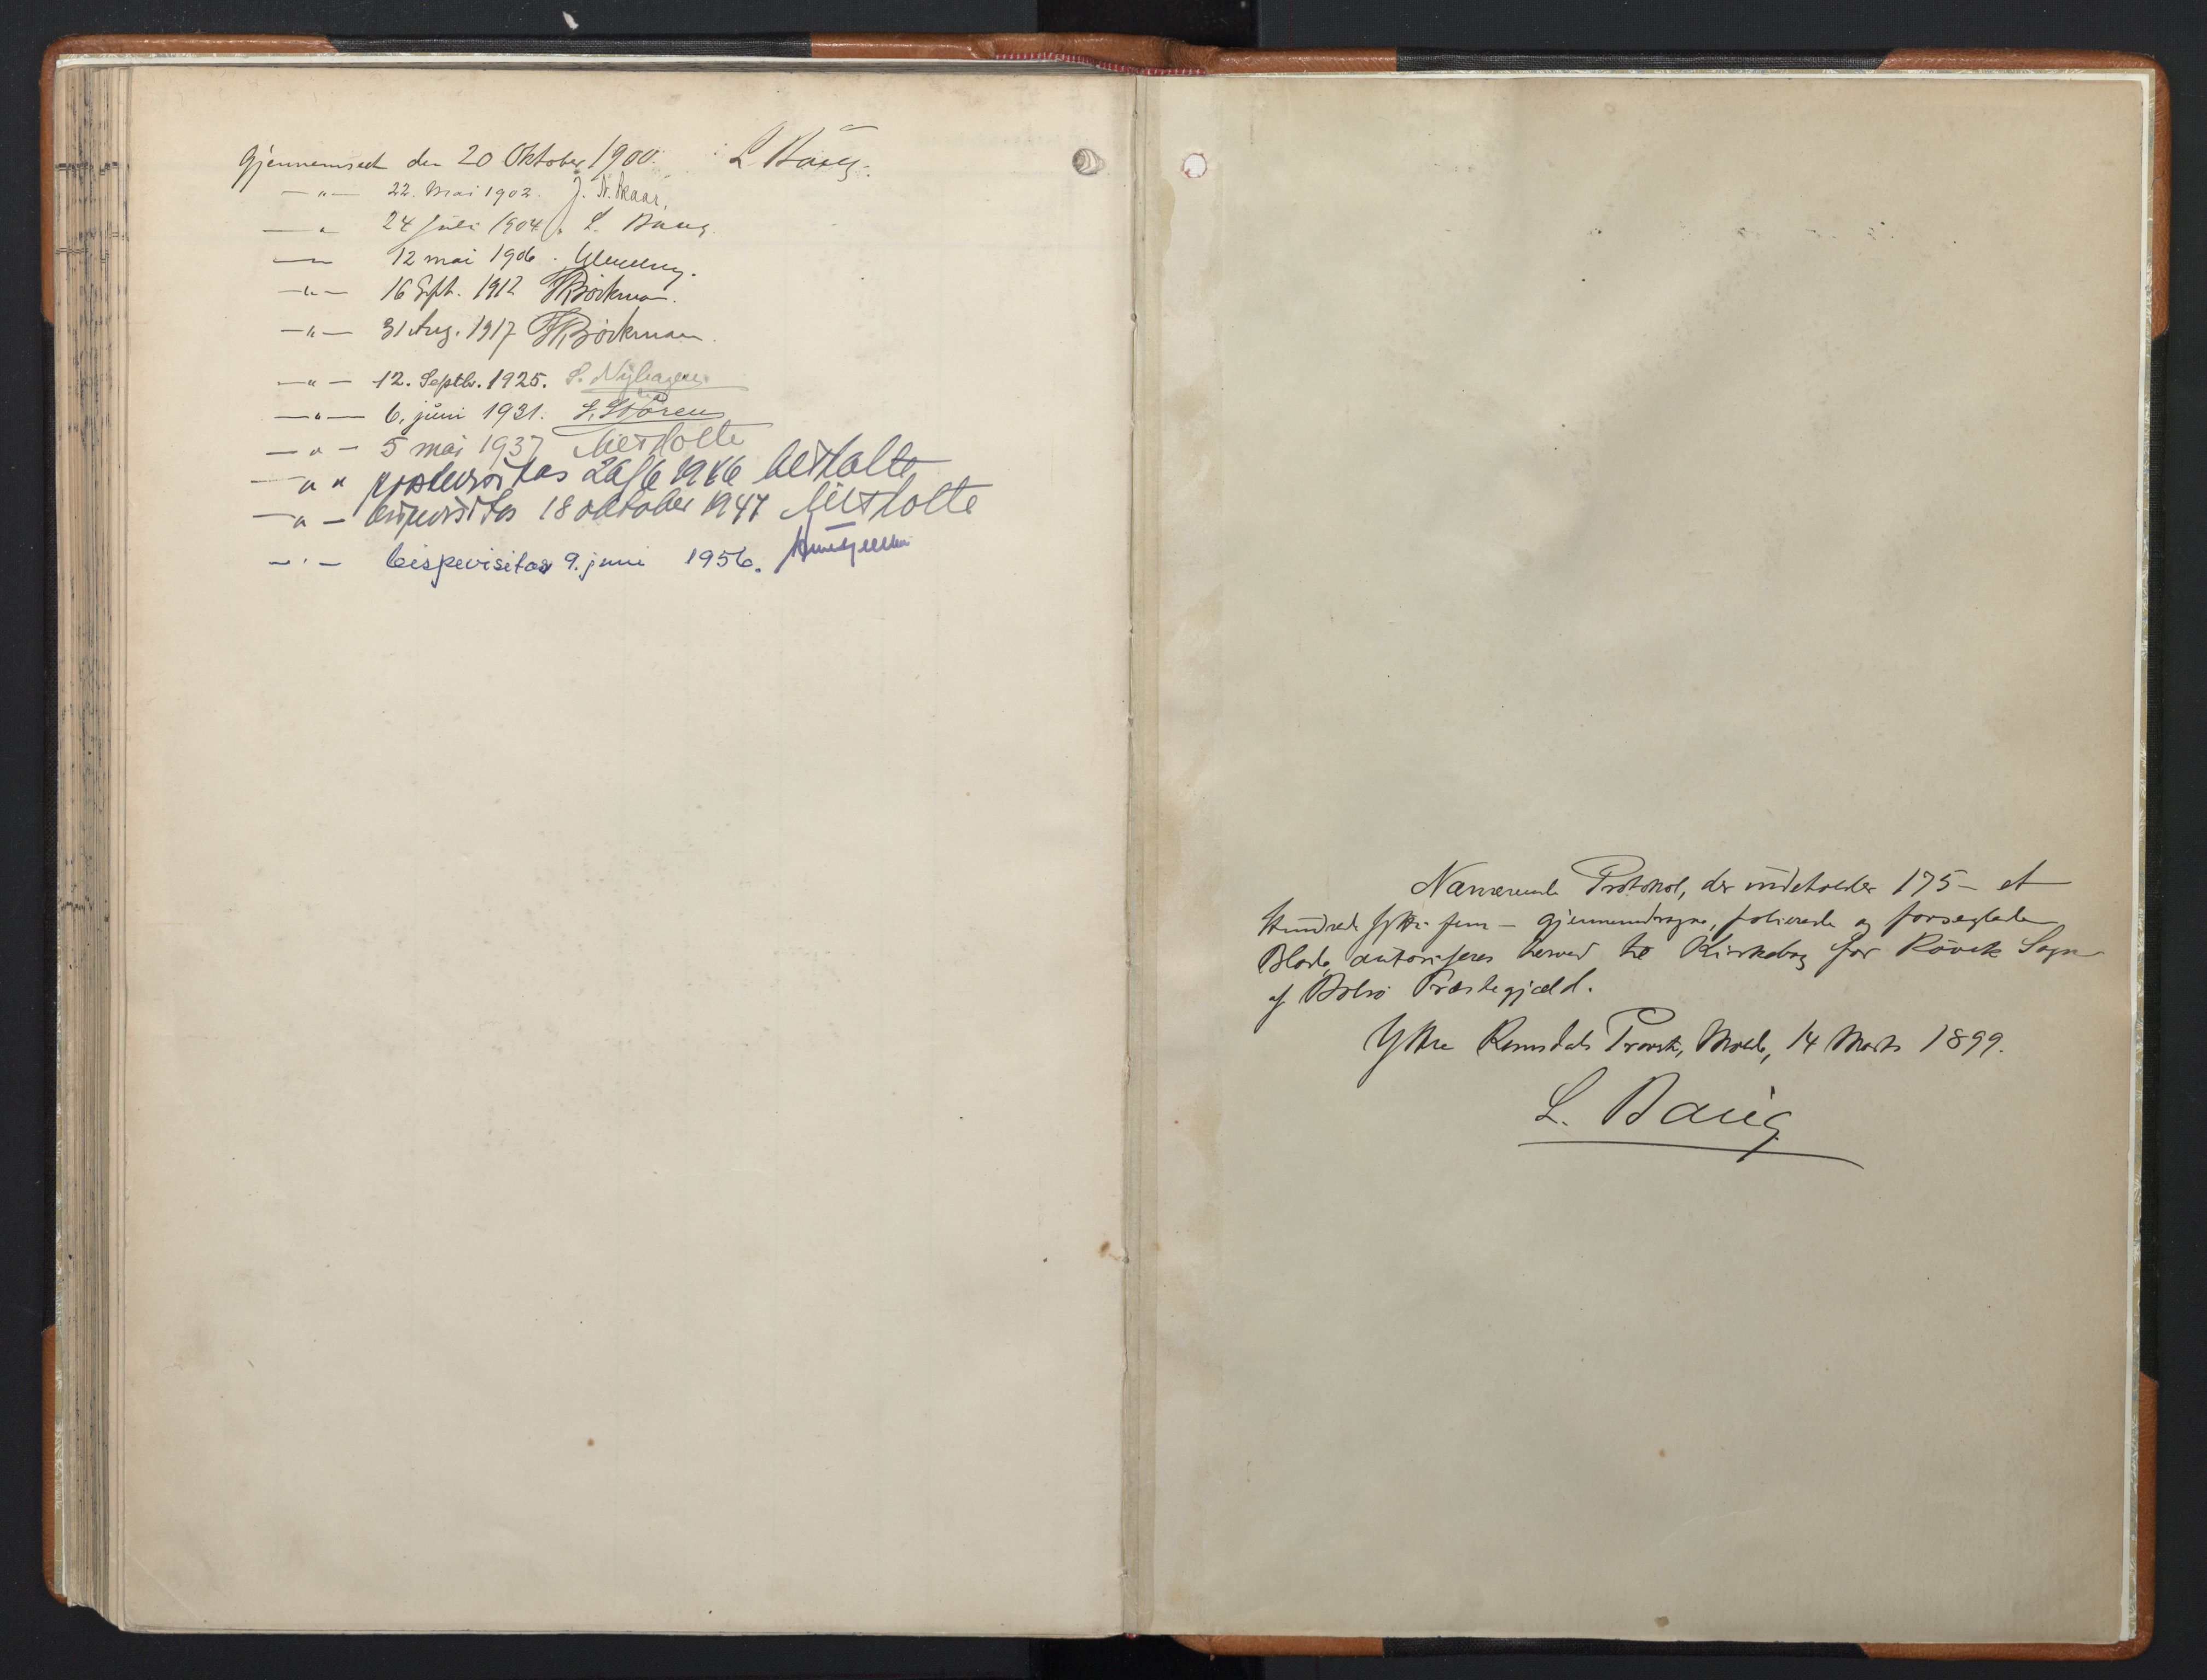 Gjennemseet den 20 Oktober 1900. L. Baug.
—"— 22. Mai 1902. J. N. Skaar.
—"— 24 Juli 1904. L. Baug
—"— 12 mai 1906.
—"— 16 Sept. 1912 Böckman.
—"— 31 Aug. 1917 Böckman.
—"— 12. Septbr. 1925. P. Nyhagen.
—"— 6. juni 1931. S. Støren
—"— 5 mai 1937
—"— prostevisitas 26/6 1946
—"— bispevisitas 18 oktober 1947
—"— bispevisitas 9. juni 1956.
Nærværende Protokol, der indeholder 175 – et
Hundrede Sytti fem – gjennemdragne, folierede og forseglede
Blade, autoriseres herved til Kirkebog for Røvik Sogn
af Bolsø Præstegjæld.
Ytre Romsdals Provsti, Molde, 14 Marts 1899.
L. Baug